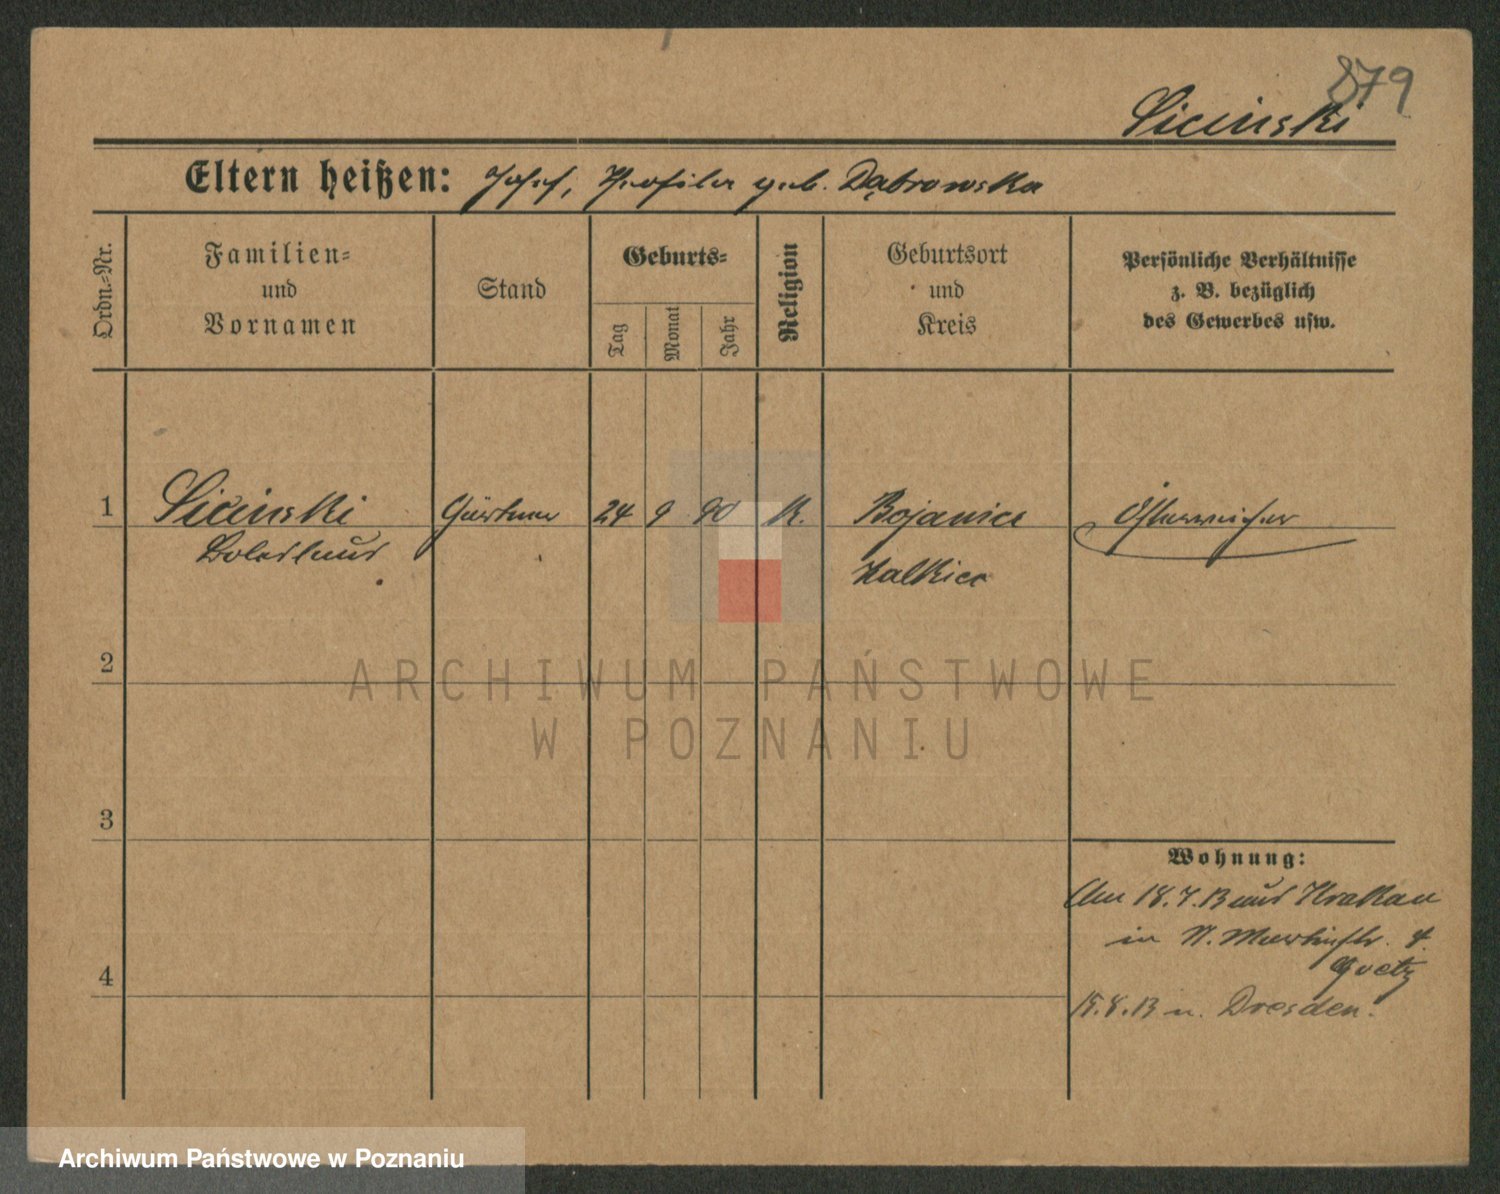 879
Sicinski
Eltern heißen: Josef, Theofila geb. Dąbrowska
Ordn.-Nr.
Familien-
und
Vornamen
Stand
Geburts-
Tag
Monat
Jahr
Religion
Geburtsort
und
Kreis
Persönliche Verhältnisse
z. B. bezüglich
des Gewerbes usw.
1 Sicinski Gärtner 24 9 90 K. Bojanice Österreicher
Boleslaus
2
3
4
Wohnung:
Am 18.7.13 aus Krakau
in St. Martinstr. 4.
Goetz
15.8.13 n. Dresden.
ARCHIWUM PAŃSTWOWE
W POZNANIU
Archiwum Państwowe w Poznaniu